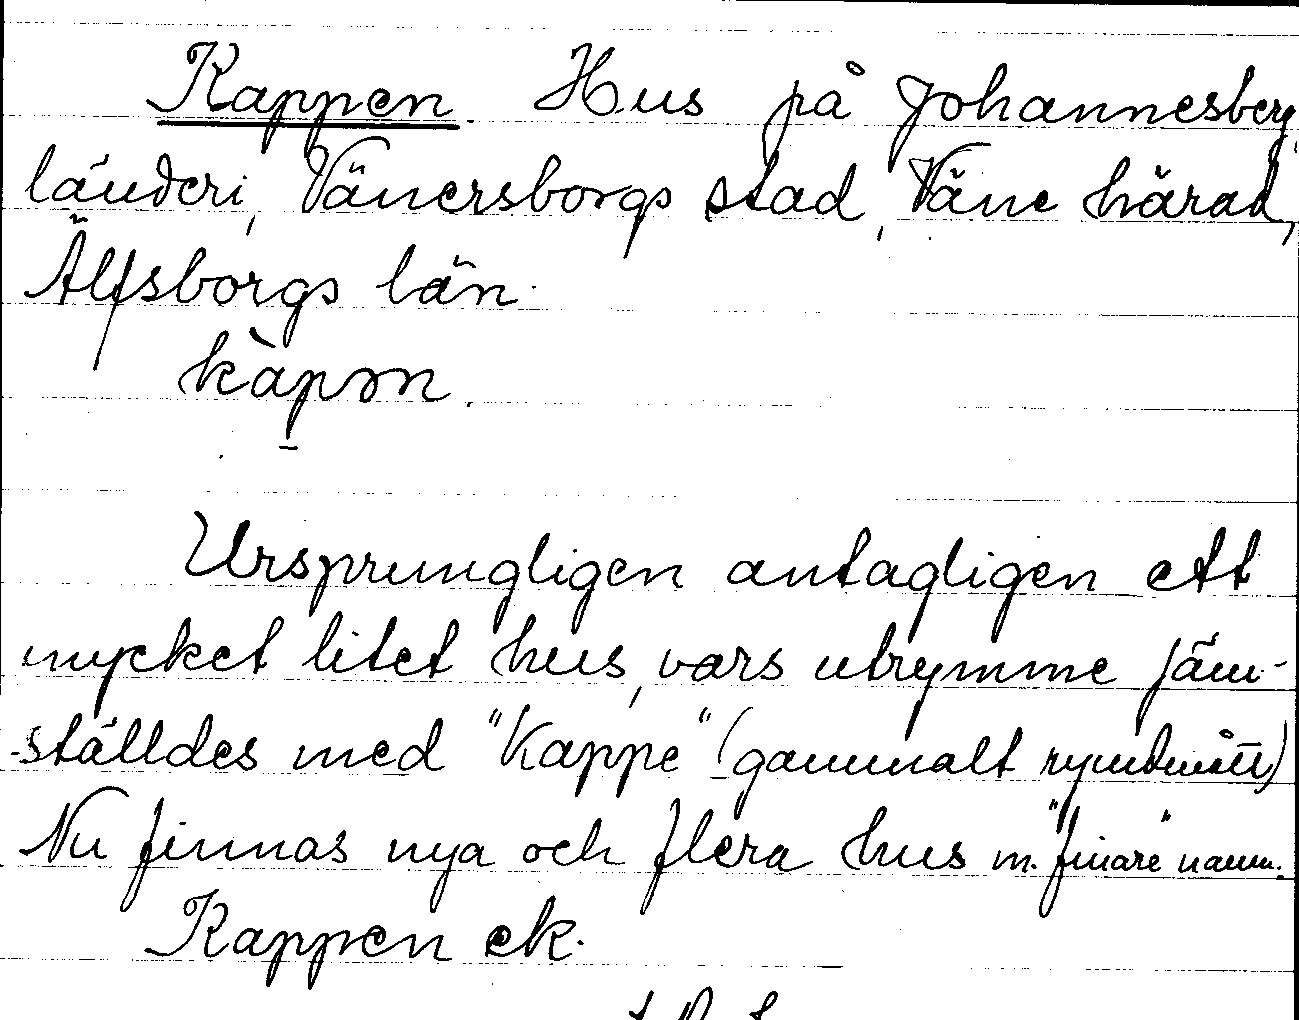 Kappen. Hus på Johannesberg,
länderi, Vänersborgs stad, Väne härad,
Älfsborgs län.
kàpən.
Ursprungligen antagligen ett
mycket litet hus, vars utrymme jäm-
ställdes med "Kappe" (gammalt rymdmått)
Nu finnas nya och flera hus m. "finare" namn.
Kappen ek.